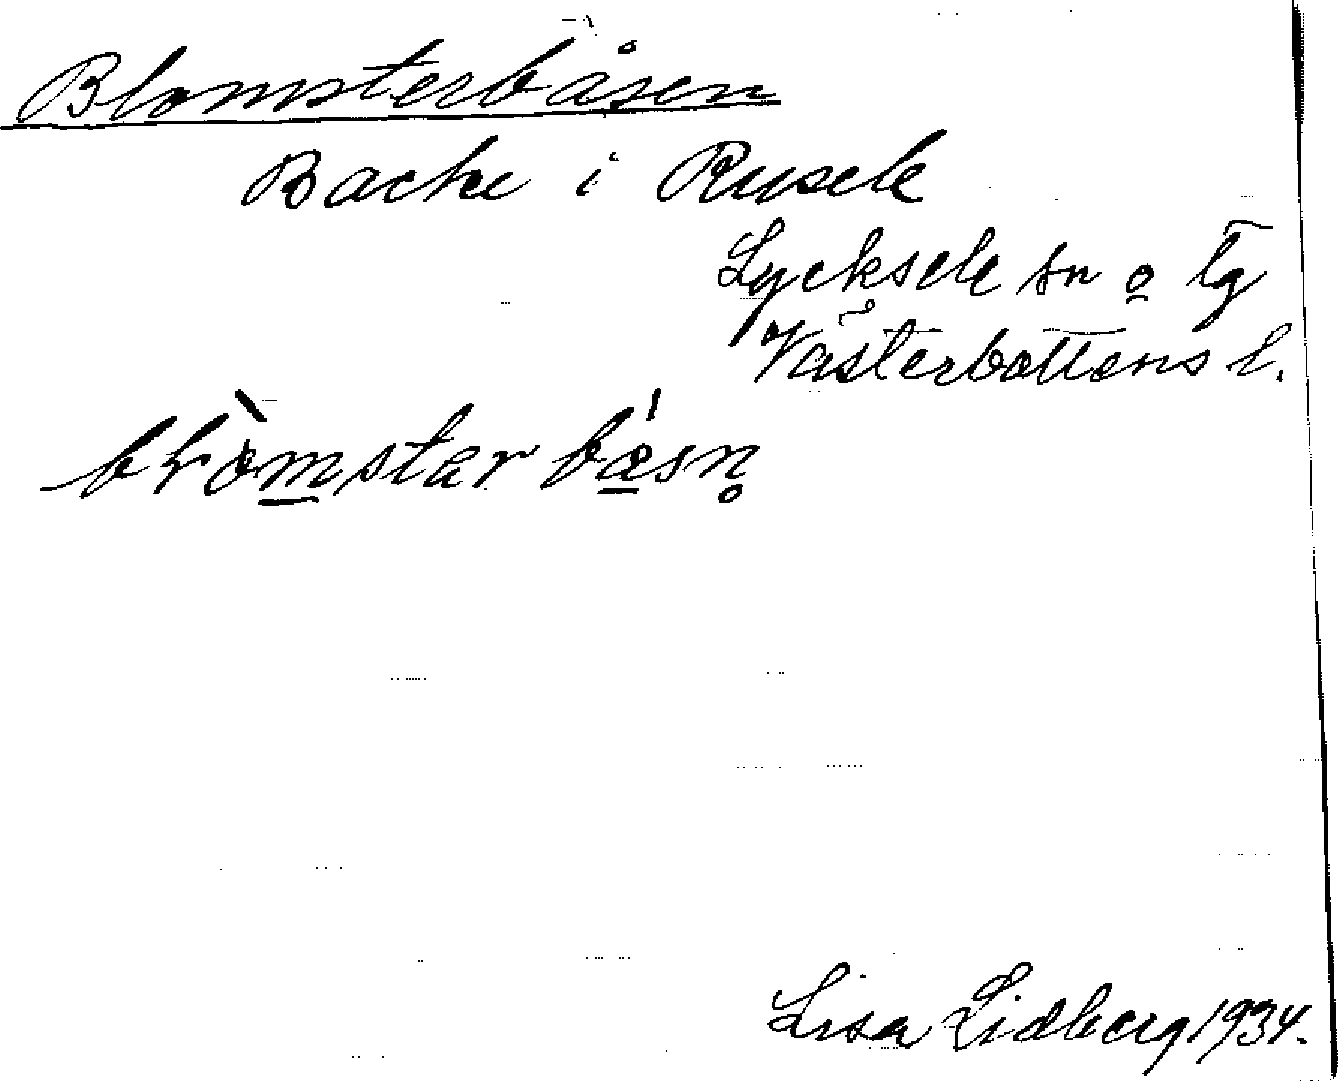 Blomsterbåsen
Backe i Rusele
Lycksele sn o tg
Västerbottens l.
Lisa Lidberg 1934.